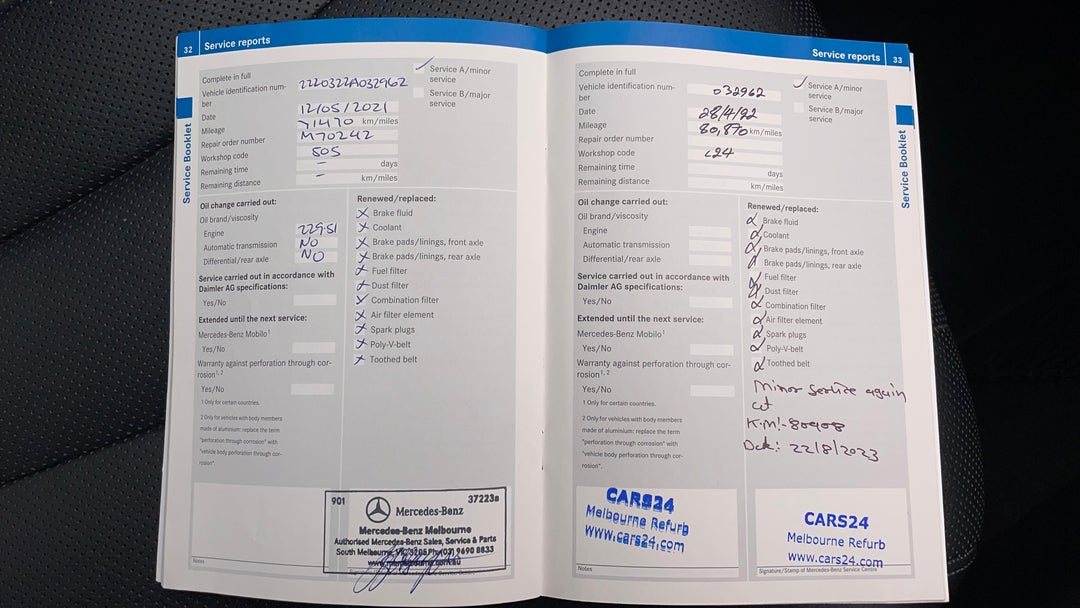 32 Service reports
Complete in full
Vehicle identification num-
ber
2220322A032962
Date
12/05/2021
Mileage
71470 km/miles
Repair order number
M70242
Workshop code
505
Remaining time
- days
Remaining distance
- km/miles
✓ Service A/minor
service
Service B/major
service
Service Booklet
Oil change carried out:
Oil brand/viscosity
Engine
229.51
Automatic transmission
NO
Differential/rear axle
NO
Service carried out in accordance with
Daimler AG specifications:
Yes/No
Extended until the next service:
Mercedes-Benz Mobilo1
Yes/No
Warranty against perforation through cor-
rosion1, 2
Yes/No
1 Only for certain countries.
2 Only for vehicles with body members
made of aluminium: replace the term
"perforation through corrosion" with
"vehicle body perforation through cor-
rosion".
Renewed/replaced:
Brake fluid
Coolant
Brake pads/linings, front axle
Brake pads/linings, rear axle
Fuel filter
Dust filter
Combination filter
Air filter element
Spark plugs
Poly-V-belt
Toothed belt
901 37223a
Mercedes-Benz
Mercedes-Benz Melbourne
Authorised Mercedes-Benz Sales, Service & Parts
South Melbourne, VIC 3205 Ph: (03) 9690 8833
Notes
Service reports 33
Complete in full
Vehicle identification num-
ber
032962
Date
28/4/22
Mileage
80,870 km/miles
Repair order number
Workshop code
c24
Remaining time
days
Remaining distance
km/miles
✓ Service A/minor
service
Service B/major
service
Service Booklet
Oil change carried out:
Oil brand/viscosity
Engine
Automatic transmission
Differential/rear axle
Service carried out in accordance with
Daimler AG specifications:
Yes/No
Extended until the next service:
Mercedes-Benz Mobilo1
Yes/No
Warranty against perforation through cor-
rosion1, 2
Yes/No
1 Only for certain countries.
2 Only for vehicles with body members
made of aluminium: replace the term
"perforation through corrosion" with
"vehicle body perforation through cor-
rosion".
Renewed/replaced:
Brake fluid
Coolant
Brake pads/linings, front axle
Brake pads/linings, rear axle
Fuel filter
Dust filter
Combination filter
Air filter element
Spark plugs
Poly-V-belt
Toothed belt
Minor service again
at
K.M:- 80908
Date: 22/8/2023
CARS24
Melbourne Refurb
www.cars24.com
Notes
CARS24
Melbourne Refurb
www.cars24.com
Signature/Stamp of Mercedes-Benz Service Centre